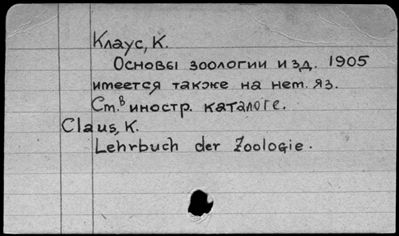 Клаус, К.
Основы зоологии изд. 1905
имеется также на нем. яз.
См. в иностр. каталоге.
Claus, K.
Lehrbuch der Zoologie.